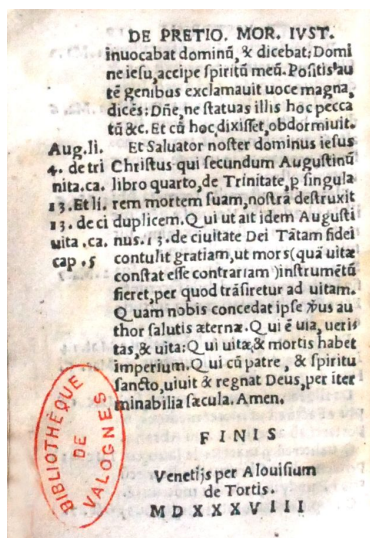 DE PRETIO. MOR. IVST.
inuocabat dominũ, & dicebat: Domi
ne iesu, accipe ſpiritũ meũ. Poſitis au
tẽ genibus exclamauit uoce magna,
dicẽs: Dñe, ne ſtatuas illis hoc pecca
tũ &c. Et cũ hoc dixiſſet, obdormiuit.
Et Saluator noſter dominus iesus
Chriſtus qui ſecundum Auguſtinũ
libro quarto, de Trinitate, p ſingula
rem mortem ſuam, noſtrã deſtruxit
duplicem. Qui ut ait idem Auguſti
nus. 13. de ciuitate Dei Tãtam fidei
contulit gratiam, ut mors (quã uitæ
conſtat eſſe contrariam) inſtrumẽtũ
fieret, per quod trãſiretur ad uitam.
Quam nobis concedat ipſe au
thor ſalutis æternæ. Qui ẽ uia, ueri
tas, & uita: Qui uitæ, & mortis habet
imperium. Qui cũ patre, & ſpiritu
ſancto, uiuit & regnat Deus, per iter
minabilia ſæcula. Amen.
Aug. li.
4. de tri
nita. ca.
13. Et li.
13. de ci
uita. ca.
cap. 5
FINIS
Venetijs per Alouiſium
de Tortis.
MDXXXVIII
BIBLIOTHÈQUE
DE
VALOGNES